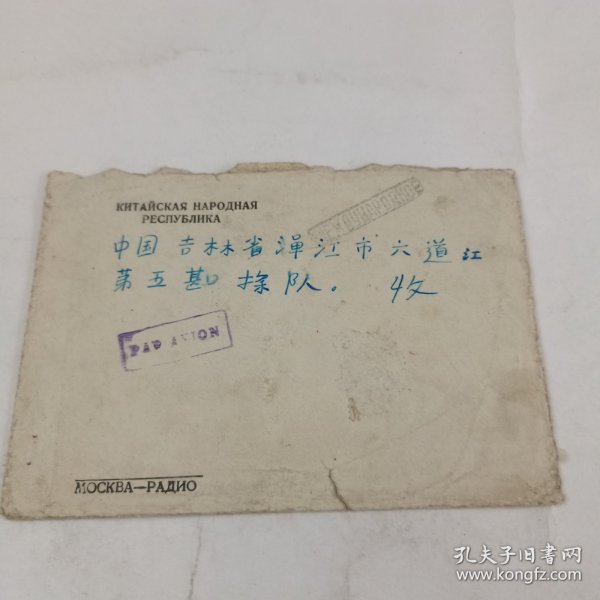 КИТАЙСКАЯ НАРОДНАЯ
РЕСПУБЛИКА
МЕЖДУНАРОДНОЕ
中国吉林省浑江市六道江
第五勘探队。 收
PAR AVION
МОСКВА—РАДИО
孔夫子旧书网
www.kongfz.com